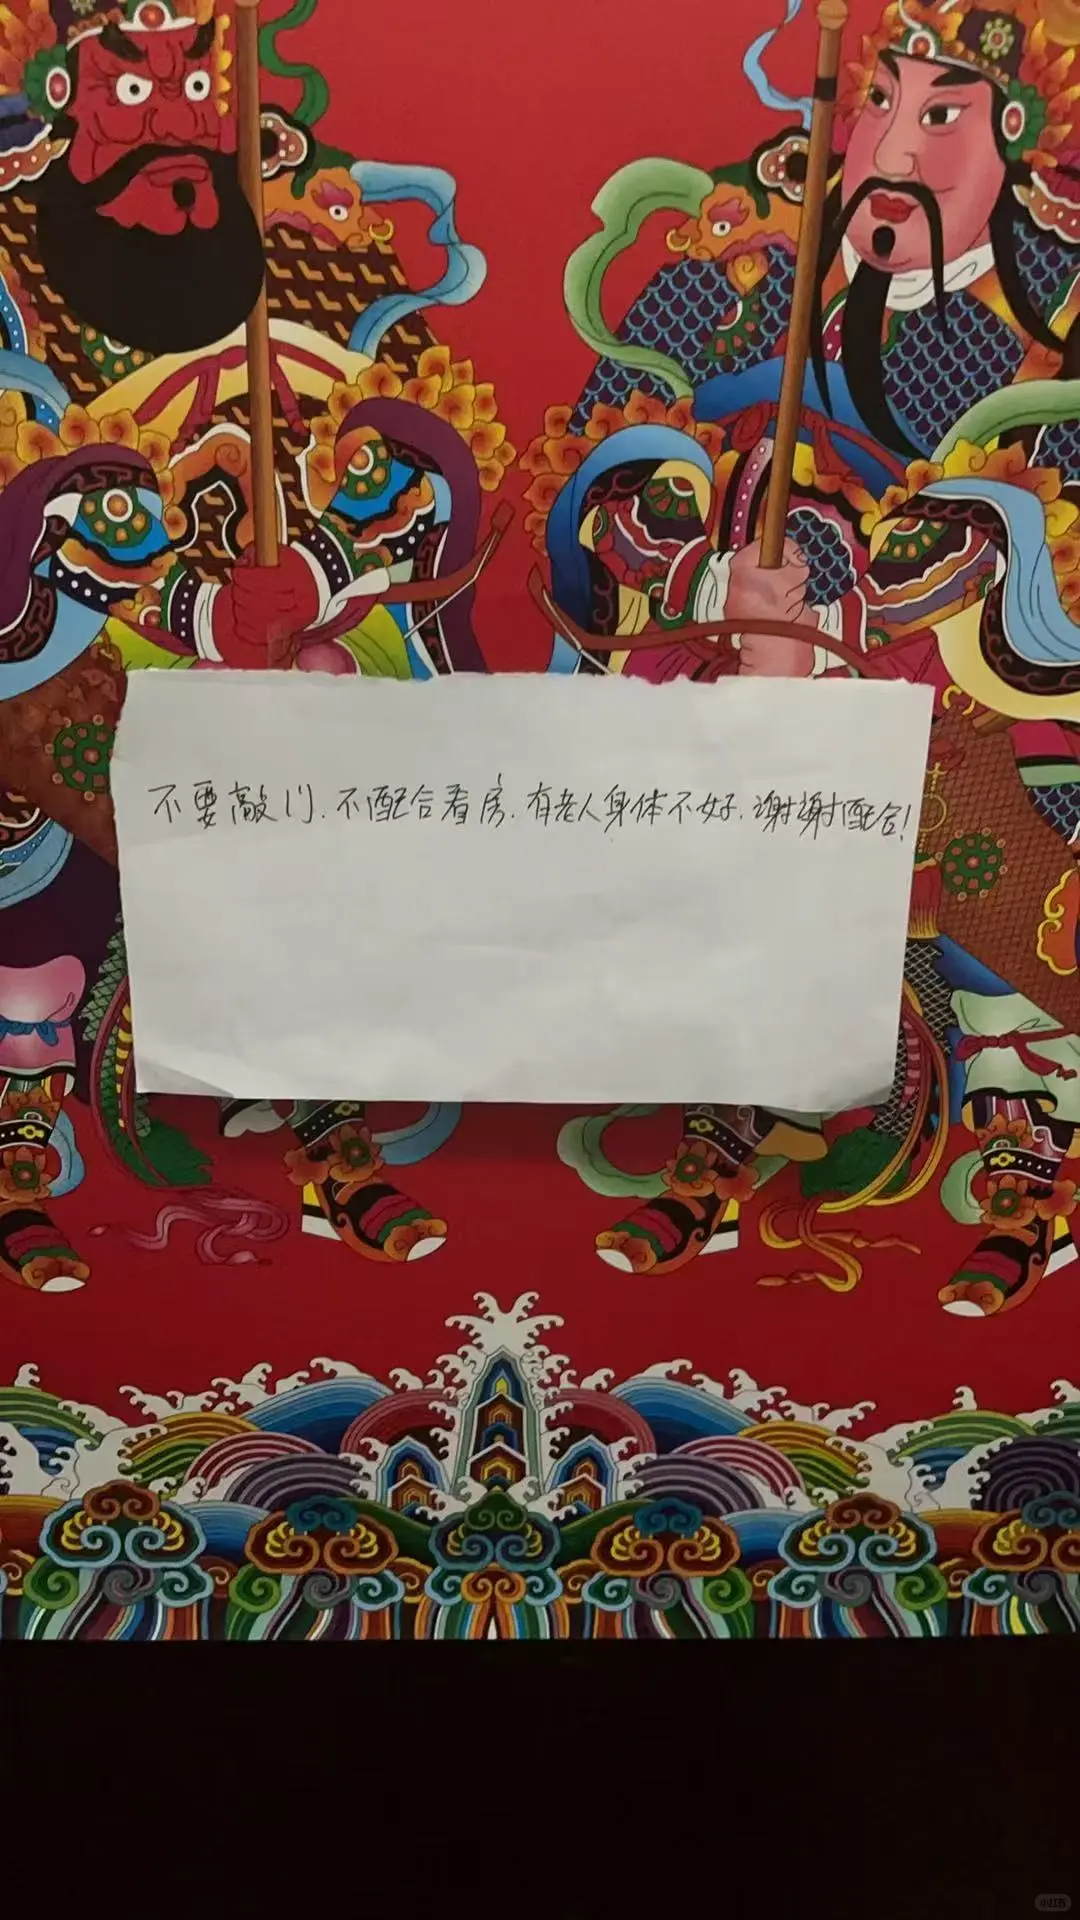 不要敲门.不配合看房.有老人身体不好.谢谢配合!
小红书